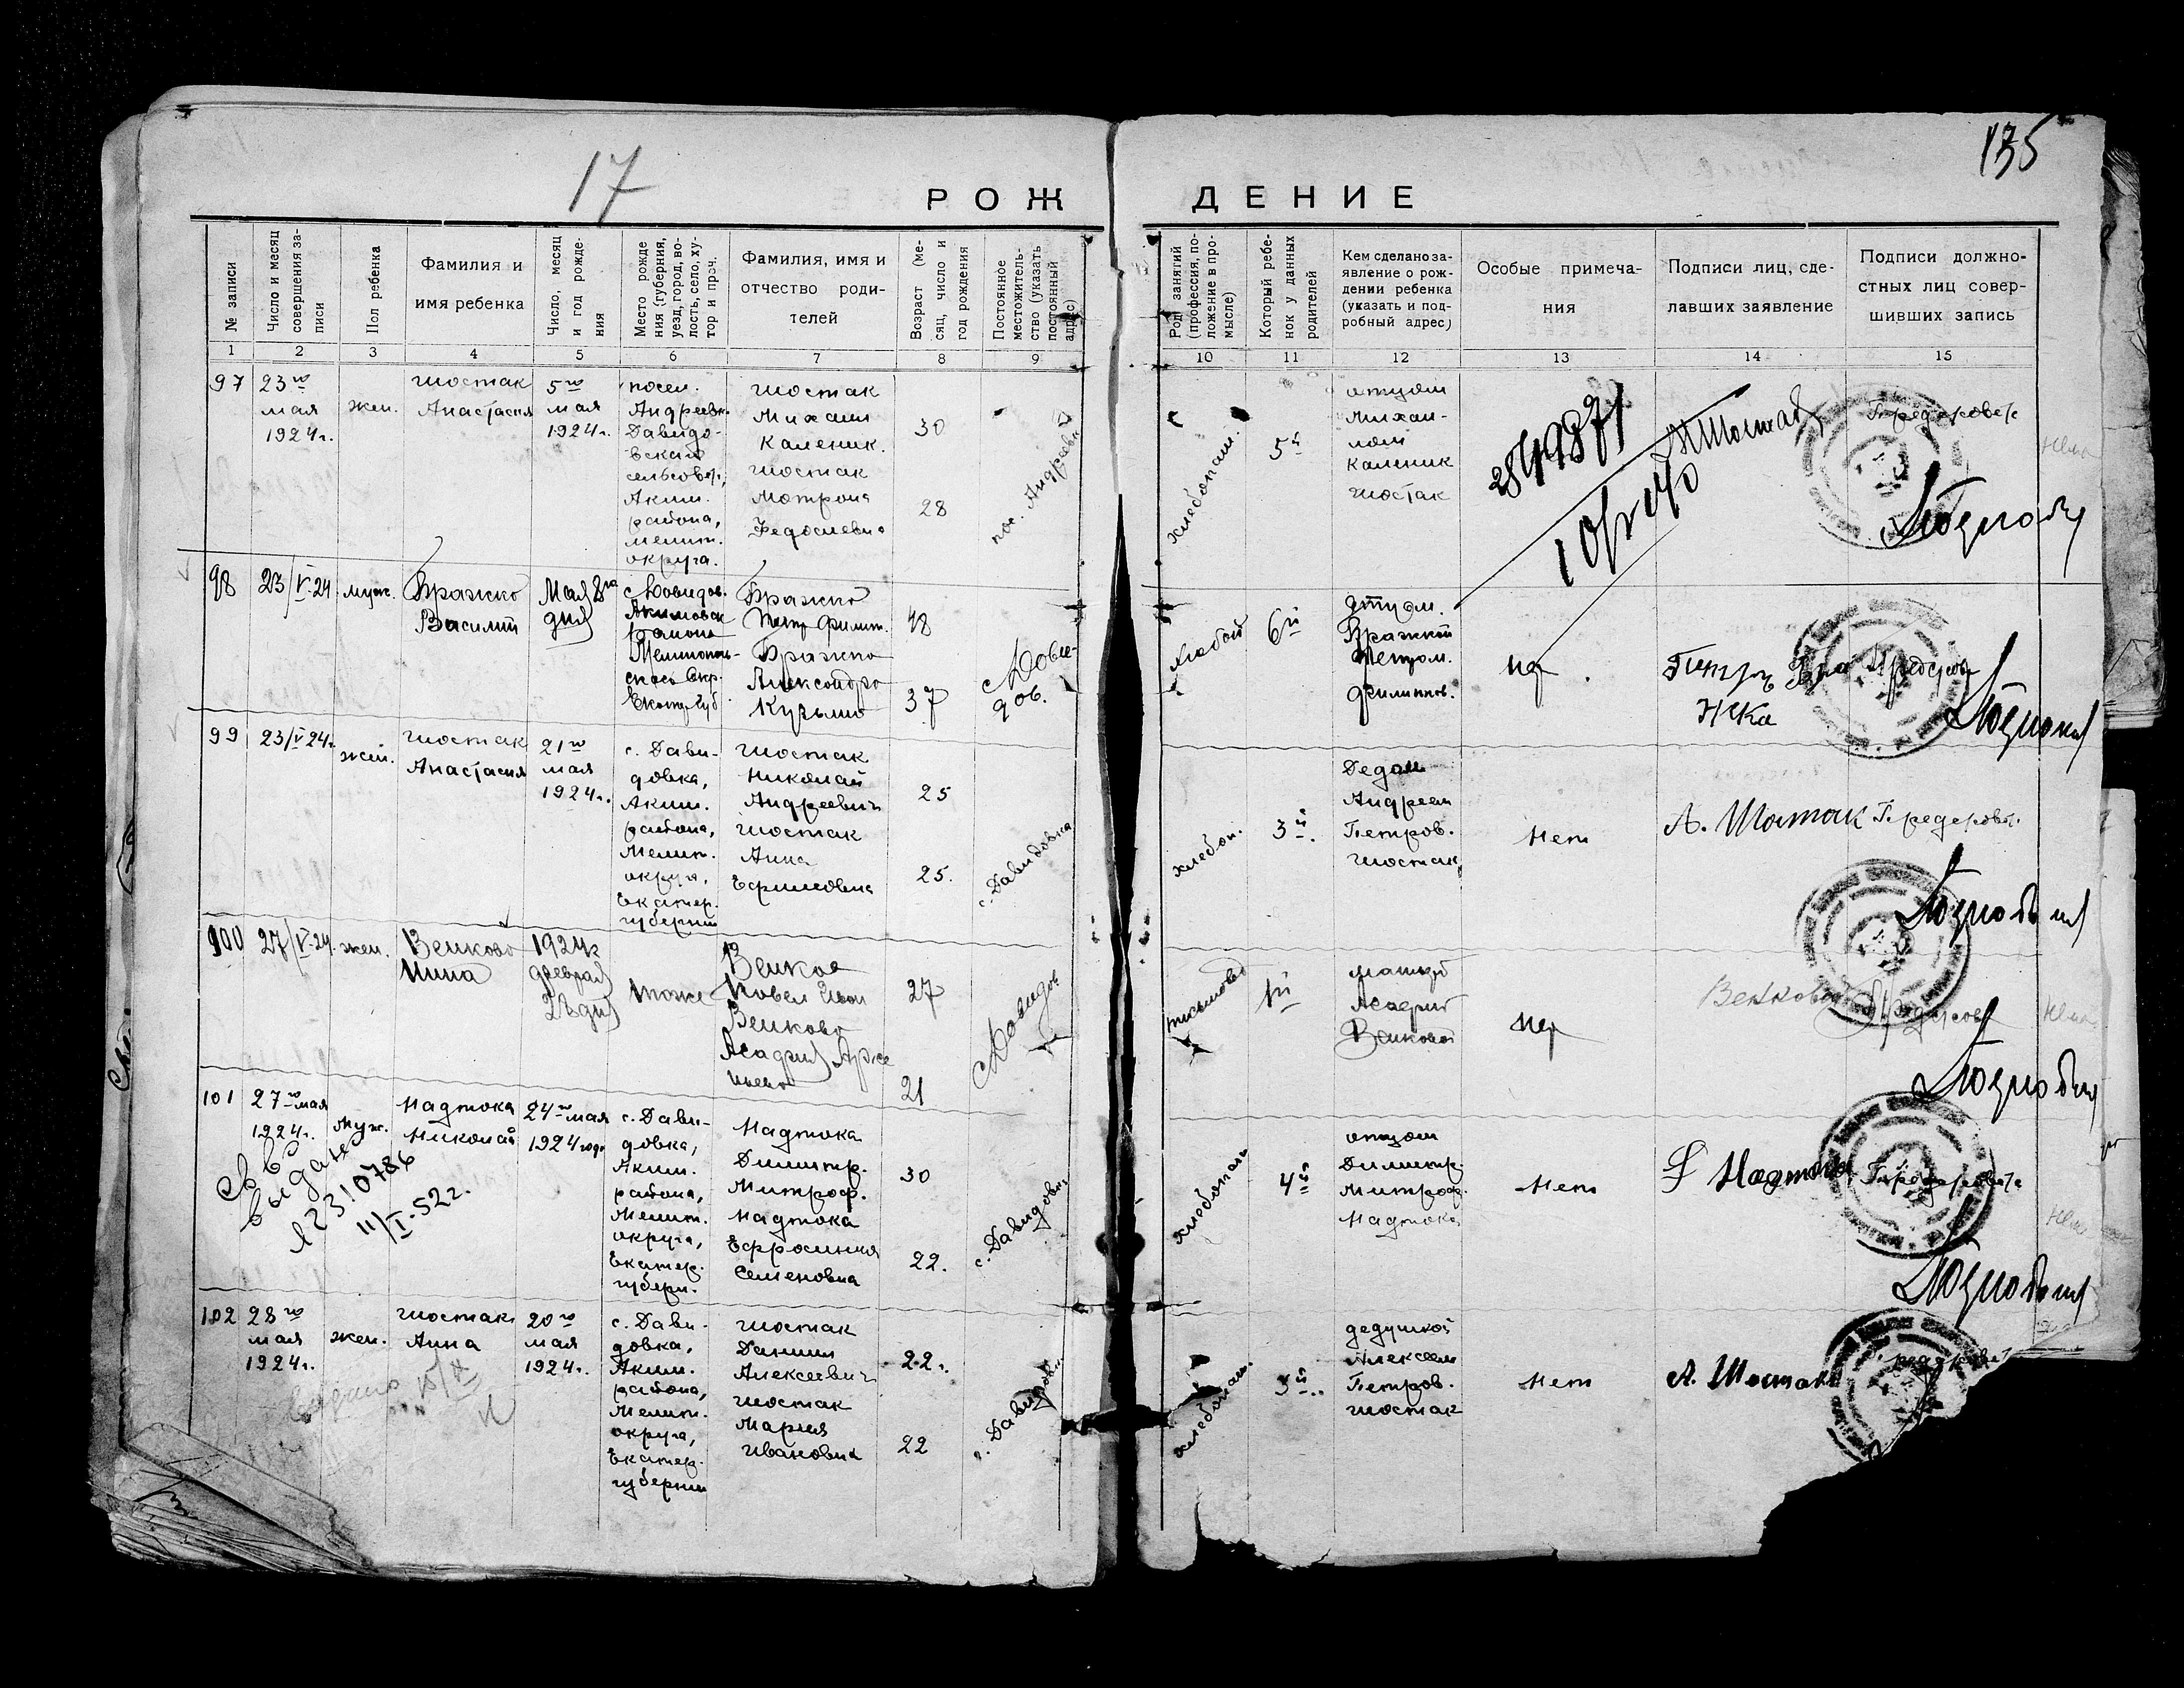 17
135
РОЖДЕНИЕ
№ записи
Число и месяц
совершения за-
писи
Пол ребенка
Фамилия и
имя ребенка
Число, месяц
и год рожде-
ния
Место рожде
ния (губерния,
уезд, город, во-
лость, село, ху-
тор и проч.
Фамилия, имя и
отчество роди-
телей
Возраст (ме-
сяц, число и
год рождения
Постоянное
местожитель-
ство (указать
постоянный
адрес)
Род занятий
(профессия, по-
ложение в про-
мысле)
Который ребе-
нок у данных
родителей
Кем сделано за-
явление о рож-
дении ребенка
(указать и под-
робный адрес)
Особые примеча-
ния
Подписи лиц, сде-
лавших заявление
Подписи должно-
стных лиц совер-
шивших запись
1 2 3 4 5 6 7 8 9 10 11 12 13 14 15
97
23го
мая
1924г.
жен.
Шостак
Анастасия
5го
мая
1924г.
посел.
Андреевк.
Давидо-
вскаго
сельсовет,
Аким.
района,
мелит.
округа.
Шостак
Михаил
Каленик.
Шостак
Мотрона
Федосиевна
30
28
пос. Андреевк
хлебопаш.
5й
отцом
Михаи-
лом
Каленик
Шостак
Предсровет
98
23/V-24
муж.
Бражко
Василий
Мая 8го
дня
с Довидов.
Акимовск
района
Мелитополь-
скаго Окр.
Бражко
Петр Филип.
Бражко
Александра
Кузьмин
48
37
с Дови-
дов.
6й
отцом.
Бражкой
Петром.
Филиппов.
99
23/V 24г.
жен.
Шостак
Анастасия
21го
мая
1924г.
с. Дави-
довка,
Аким.
района,
Мелит.
округа,
Екатер.
губернии
Шостак
Николай
Андреевич
Шостак
Анна
Ефимовна
25
25.
с. Давидовка
хлебоп.
3й.
Дедом
Андреем
Петров.
Шостак
Нет
А. Шостак
100
27/V-24.
жен.
Венкова
Нина
1924г
февраля
тоже
Венков
Павел Иван
Венкова
27
21
с Довидов
1й
Венковой
Венкова
101
27го мая
1924г.
муж.
Надтока
Николай
24го мая
1924 года
с. Дави-
довка,
Аким.
района,
Мелит.
округа,
Екатер.
губерн.
Надтока
Димитр.
Митроф.
Надтока
Ефросиния
Семеновна
30
22.
с. Давидовк.
хлебопаш
4й
отцом
Димитр.
Митроф.
Надтока
Нет
Надтока
Св во
выдано
11/I-52г.
102
28го
мая
1924г.
жен.
Шостак
Анна
20го
мая
1924г.
с. Дави-
довка,
Аким.
района,
Мелит.
округа,
Екатер.
губернии
Шостак
Даниил
Алексеевич
Шостак
Мария
Ивановна
22.
22
с. Давидовк
хлебопаш.
3й.
дедушкой
Алексеем
Петров.
Шостак
Нет
А. Шостак